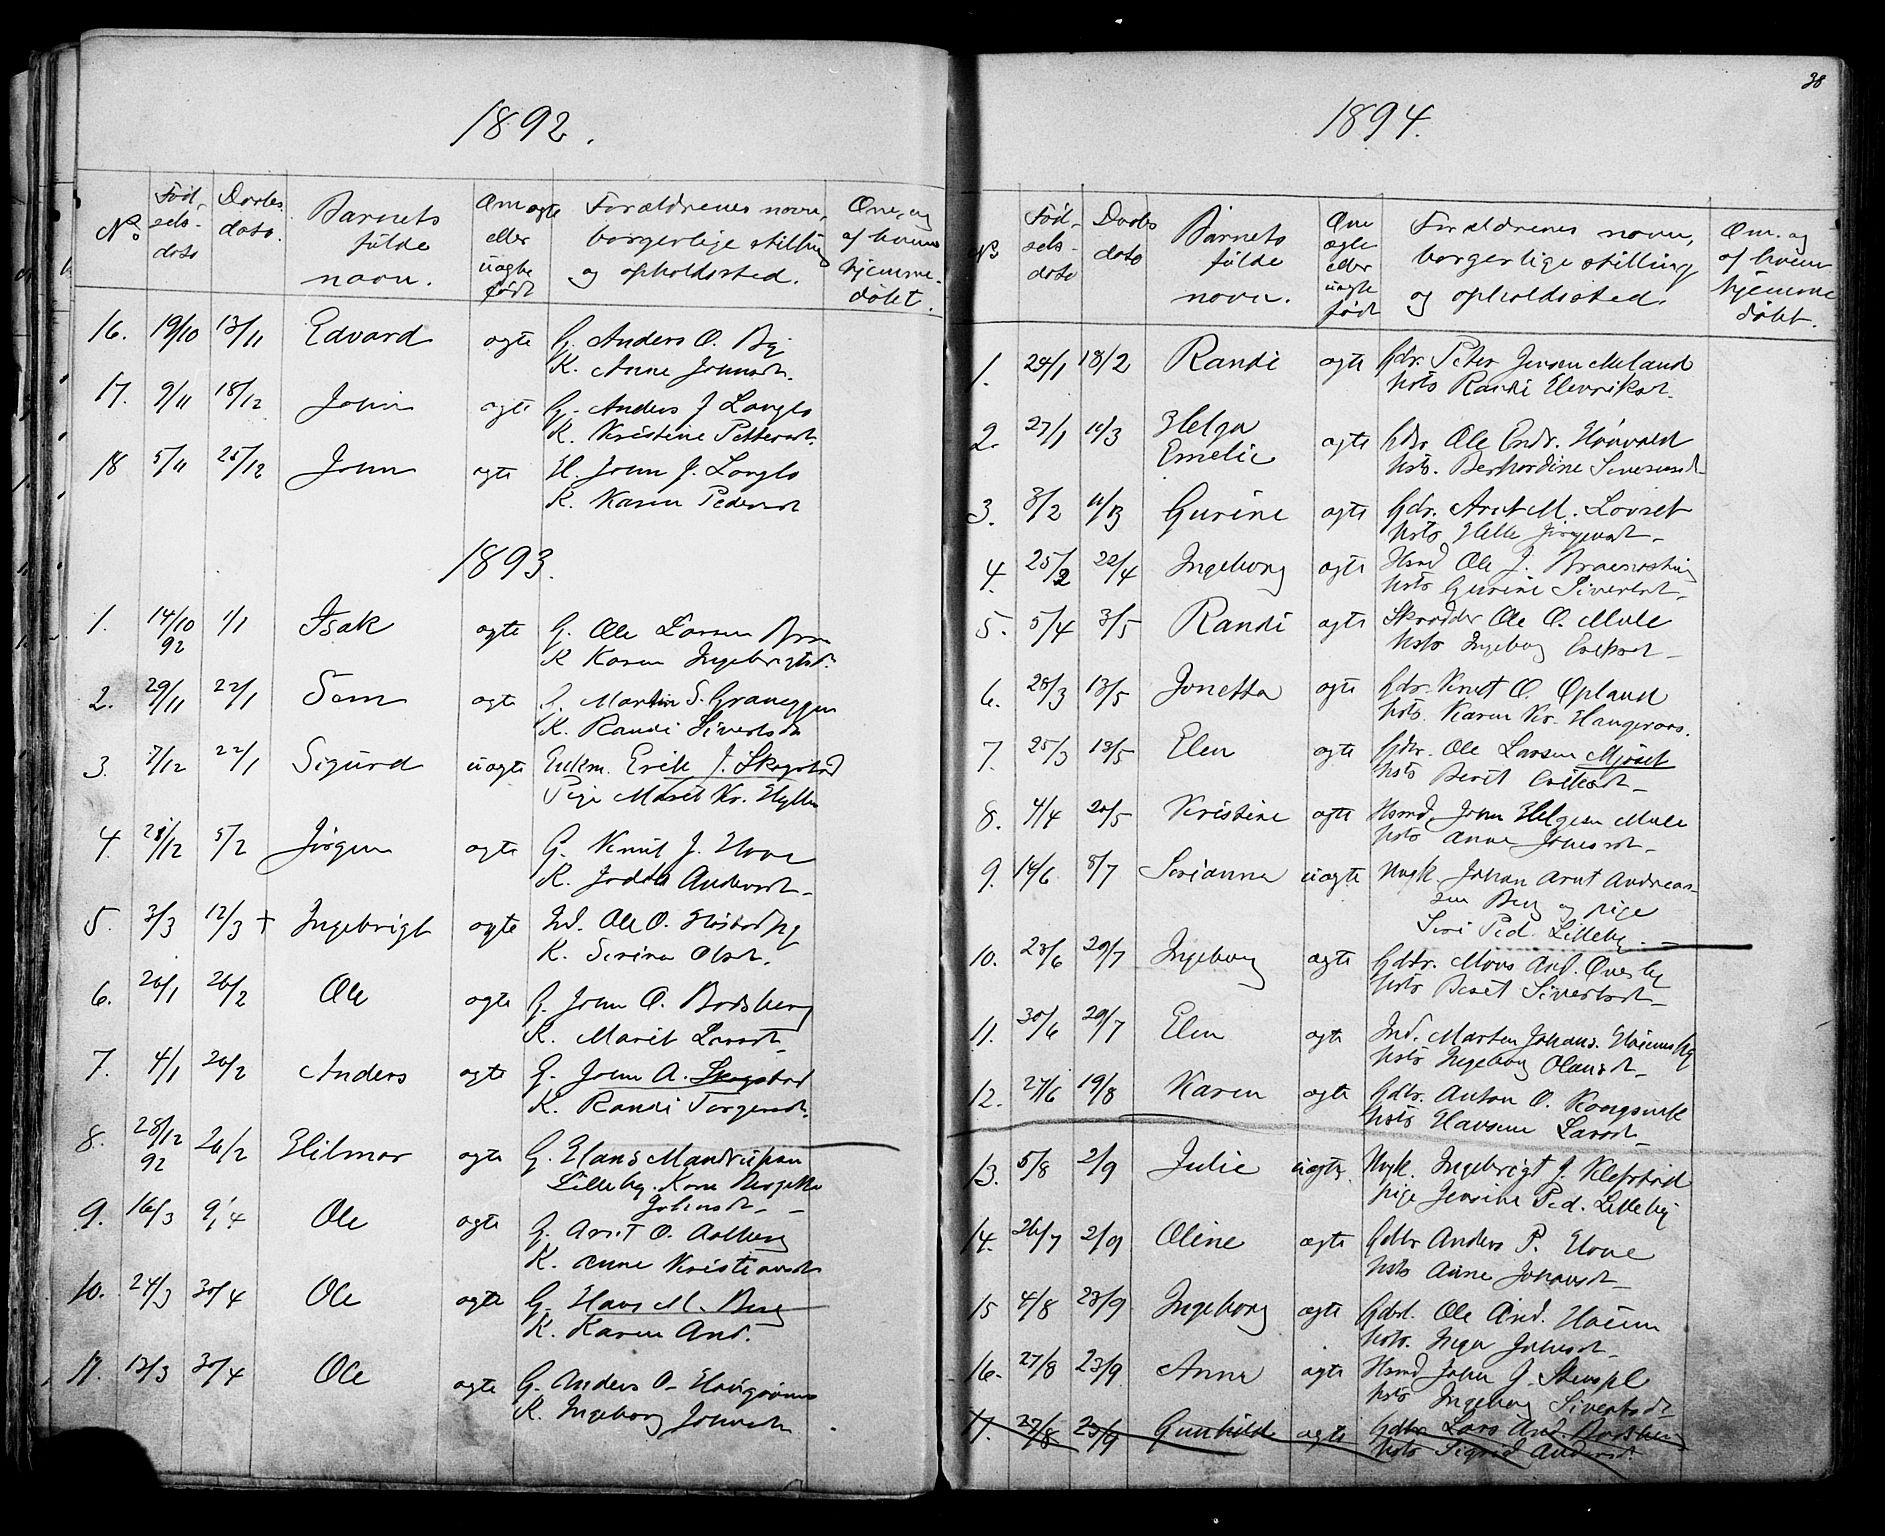 1892.
No
Fød-
sels-
dato
Daabs
dato.
Barnets
fulde
navn.
Om ægte
eller
uægte
født
Forældrenes navn,
borgerlige stilling
og opholdssted.
Om, og
af hvem
hjemme-
døbt.
16. 19/10 13/11 Edvard ægte G. Anders O. By
K. Anne Johnsdt.
17. 9/11 18/12 John ægte G. Anders J Langlo
K. Kristine Pettersdt.
18 5/11 25/12 John ægte H. John J. Langlo
K. Karen Pedersdt
1893.
1. 14/10 1/1 Isak ægte G. Ole Larsen
92 K Karen Ingebrigtsd.
2. 29/11 22/1 Sam ægte G. Martin S. Graneggen
K. Randi Sivertsdt
3. 7/12 22/1 Sigurd uægte Enkm. Erik J. Skogstad
Pige Marit Kr. Hylla
4. 28/12 5/2 Jørgen ægte G. Knut J. Hove
K. Andersdt.
5. 3/3 12/3 + Ingebrigt ægte Ind. Ole O.
K. Serina Olsdt.
6. 26/1 26/2 Ole ægte G. John O. Bodsberg
K. Marit Larsdt.
7. 4/1 26/2 Anders ægte G. John A. Skogstad
K. Randi Torgersdt.
8. 28/12 26/2 Hilmar ægte G. Hans
92 Lilleby. Karen
Johnsdt.
9. 16/3 9/4 Ole ægte G. Arnt O. Aalberg
K. Anne Kristiansdt
10. 24/3 30/4 Ole ægte G. Hans M. Berg
K. Karen And.
11. 12/3 30/4 Ole ægte G. Anders O.
K. Ingeborg Johnsdt.
38
1894.
No
Fød-
sels-
dato
Daabs
dato
Barnets
fulde
navn.
Om
ægte
eller
uægte
født
Forældrenes navn,
borgerlige stilling
og opholdssted.
Om. og
af hvem
hjemme
døbt.
1. 24/1 18/2 Randi ægte Gdr. Peter Jensen Meland
Hsto Randi Henriksdt.
2. 27/1 11/3 Helga ægte Gdbr Ole Endr.
Emelie Hsto. Berhardine
3. 3/2 11/3 Gurine ægte Gdr. Arnt M. Løvset
Hsto Helle Jørgensdt.
4. 25/2 22/4 Ingeborg ægte Hsmd Ole J.
Hsto Gurine Sivertsdt.
5. 5/4 3/5 Randi ægte Skrædder Ole O. Mule
Hsto Ingeborg Eriksdt.
6. 28/3 13/5 Jonetta ægte Gdr. Knut O. Opland
Hsto. Karen Kr.
7. 25/3 13/5 Elen ægte Gdbr. Ole Larsen Mjøset
Hsto Berit Eriksdt.
8. 4/4 20/5 Kristine ægte Hsmd, John Helgesen Mule
Hsto Anne Johnsdt.
9. 14/6 8/7 Serianna uægte Ungk. Johan Arnt Andreas-
sen Berg og pige
Siri Ped. Lilleby.
10. 23/6 29/7 Ingeborg ægte Gdbr. Mons And. Øverby
Hsto Berit Sivertsdt.
11. 30/6 29/7 Elen ægte Ind. Martin Johans.
Hsto Ingeborg Olausdt.
12. 27/6 19/8 Karen ægte Gdbr. Anton O. Kongsvik
Hsto Hansine Larsdt.
13. 5/8 2/9 Julie uægte. Ungk. Ingebrigt J. Klefstad
pige Jensine Ped. Lilleby
14. 26/7 2/9 Oline ægte Gdbr Anders P. Hove
Hsto Anne Johansdt.
15 4/8 23/9 Ingeborg ægte Gdbr. Ole And.
Hsto. Inga Johnsdt.
16. 27/8 23/9 Anna ægte Hsmd John J.
Hsto Ingeborg Sivertsdt.
17. 27/8 23/9 Gunhild ægte Gdbr Lars And. Bodsberg
Hsto Sigrid Andersdt.